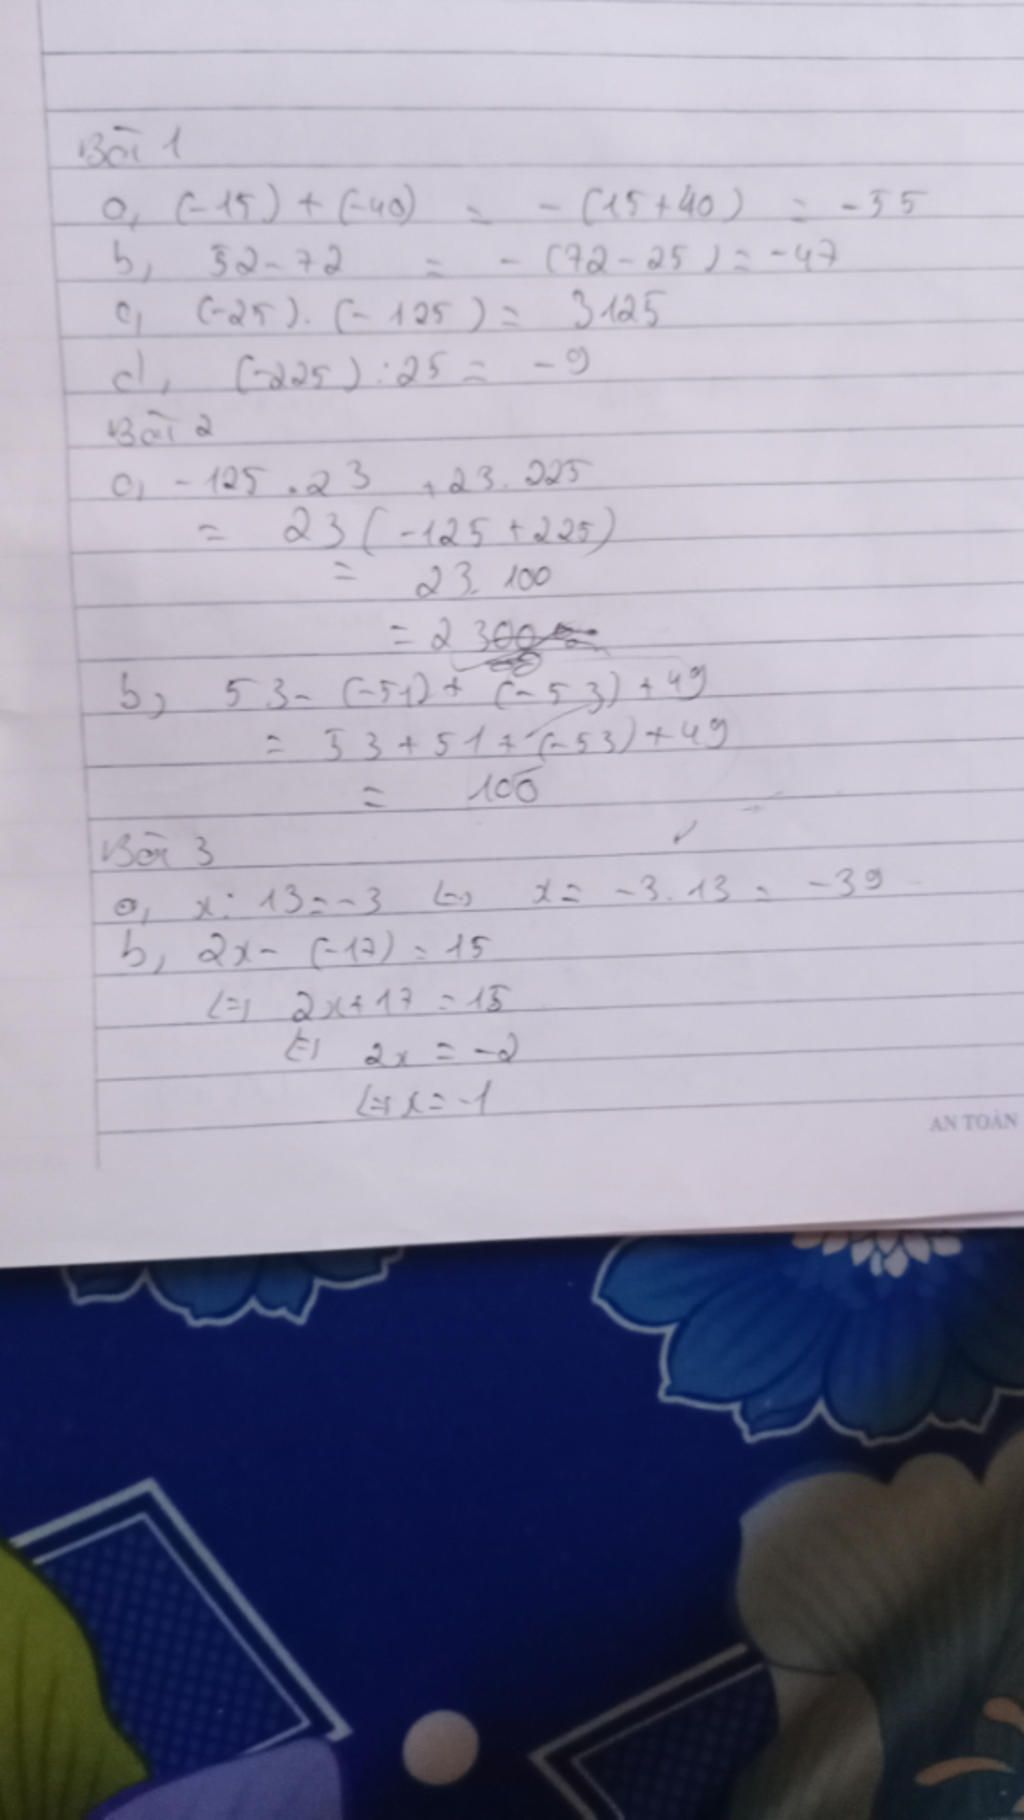 Bài 1
a, (-15) + (-40) = - (15+40) = -55
b, 52-72 = - (72-25) = -47
c, (-25). (-125) = 3125
d, (-225) : 25 = -9
Bài 2
a, -125 . 23 + 23. 225
= 23 ( -125 + 225)
= 23. 100
= 2300
b, 53- (-51) + (-53) + 49
= 53 + 51 + (-53) + 49
= 100
Bài 3
a, x : 13 = -3 <=> x = -3. 13 = -39
b, 2x - (-17) = 15
<=> 2x + 17 = 15
<=> 2x = -2
<=> x = -1
AN TOÀN